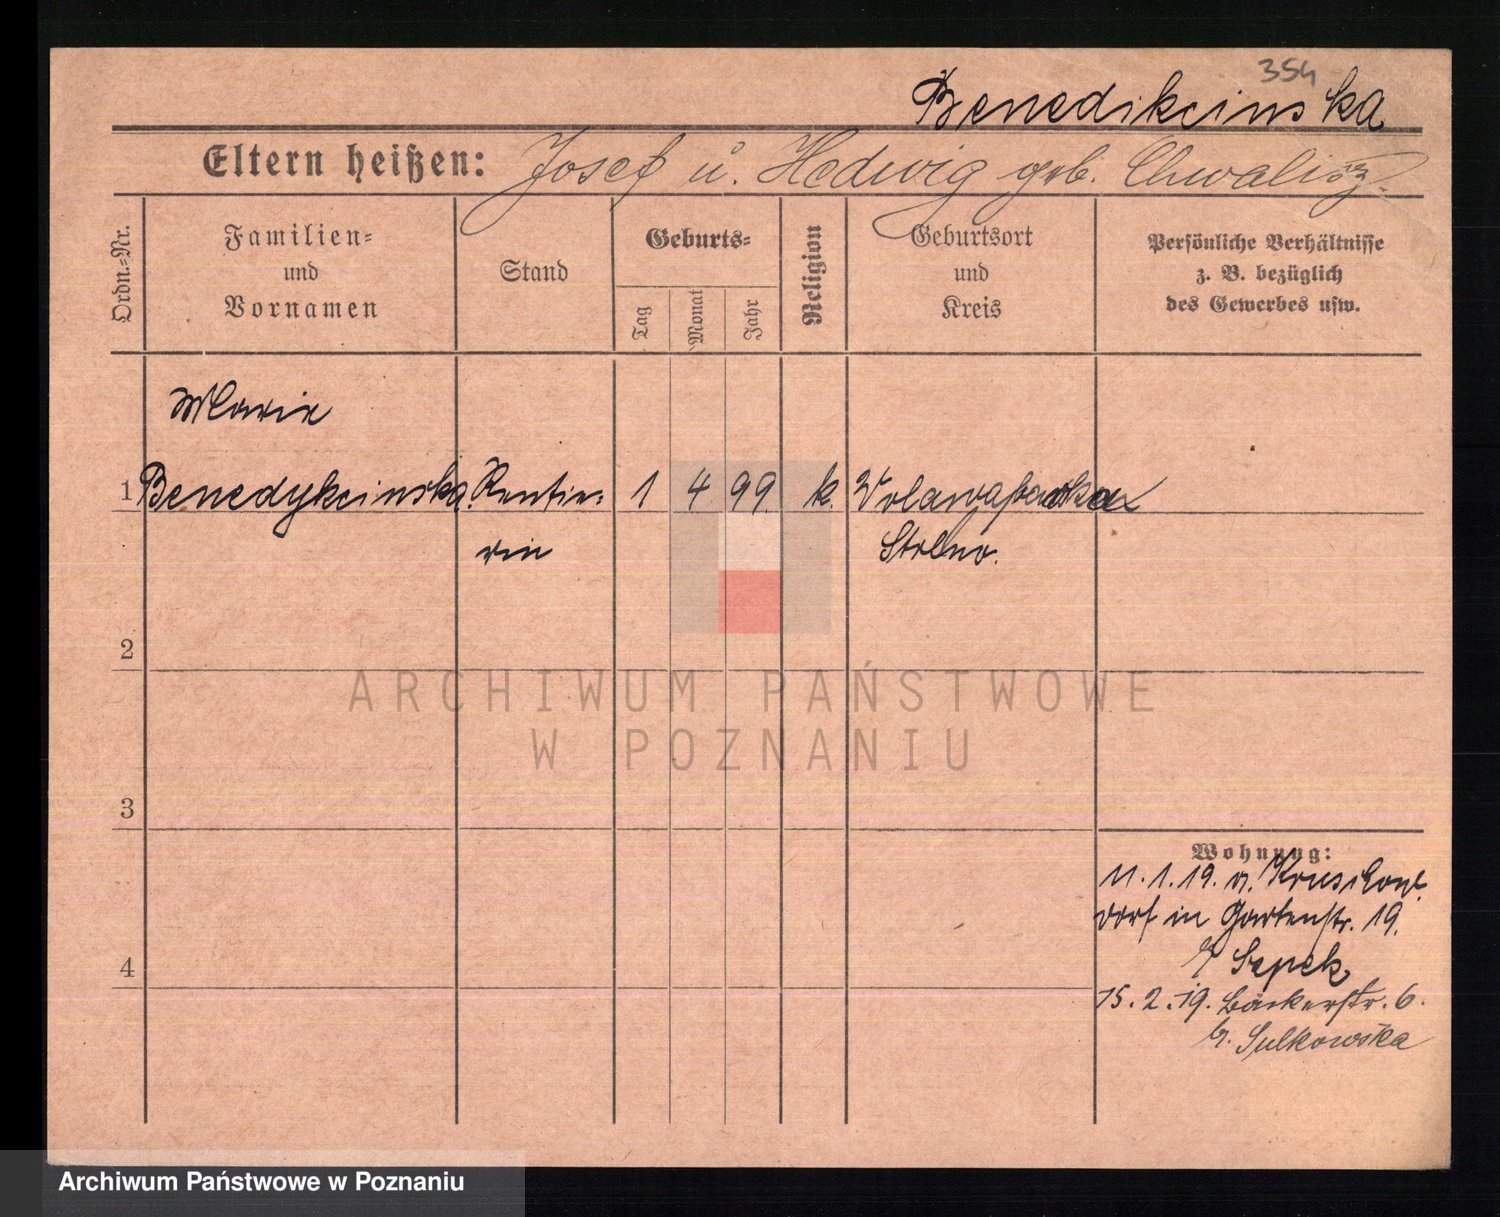 354
Benedikcinska
Eltern heißen: Josef u. Hedwig geb.
Ordn.=Nr.
Familien=
und
Vornamen
Stand
Geburts=
Tag
Monat
Jahr
Religion
Geburtsort
und
Kreis
Persönliche Verhältnisse
z. B. bezüglich
des Gewerbes usw.
Marie
1 Benedykcinska Rentie= 1 4 99. k.
rin Strelno.
2
3
4
Wohnung:
11.1.19. v.
dorf in Gartenstr. 19.
b/ Szpek
15.2.19. Bäckerstr. 6.
b. Sulkowska
ARCHIWUM PAŃSTWOWE
W POZNANIU
Archiwum Państwowe w Poznaniu